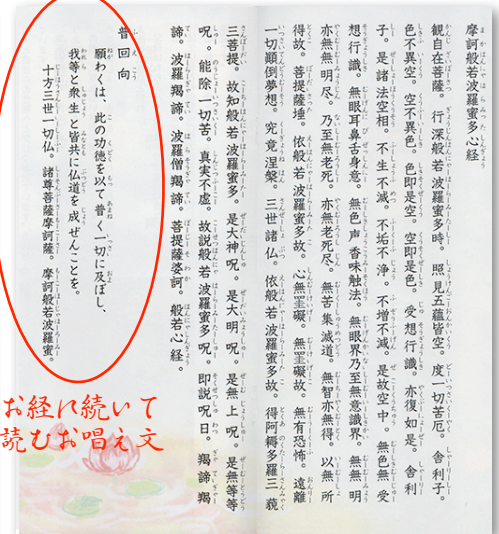 摩訶般若波羅蜜多心経
観自在菩薩。行深般若波羅蜜多時。照見五蘊皆空。度一切苦厄。舎利子。
色不異空。空不異色。色即是空。空即是色。受想行識。亦復如是。舎利
子。是諸法空相。不生不滅。不垢不浄。不増不減。是故空中。無色無受
想行識。無眼耳鼻舌身意。無色声香味触法。無眼界乃至無意識界。無無明
亦無無明尽。乃至無老死。亦無老死尽。無苦集滅道。無智亦無得。以無所
得故。菩提薩埵。依般若波羅蜜多故。心無罣礙。無罣礙故。無有恐怖。遠離
一切顛倒夢想。究竟涅槃。三世諸仏。依般若波羅蜜多故。得阿耨多羅三藐
三菩提。故知般若波羅蜜多。是大神呪。是大明呪。是無上呪。是無等等
呪。能除一切苦。真実不虚。故説般若波羅蜜多呪。即説呪曰。羯諦羯
諦。波羅羯諦。波羅僧羯諦。菩提薩婆訶。般若心経。
普回向
願わくは、此の功徳を以て普く一切に及ぼし、
我等と衆生と皆共に仏道を成ぜんことを。
十方三世一切仏。諸尊菩薩摩訶薩。摩訶般若波羅蜜。
お経に続いて
読むお唱え文